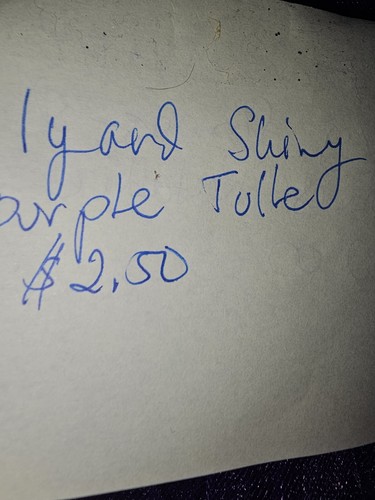 1 yard Shiny
purple Tulle
$2.50